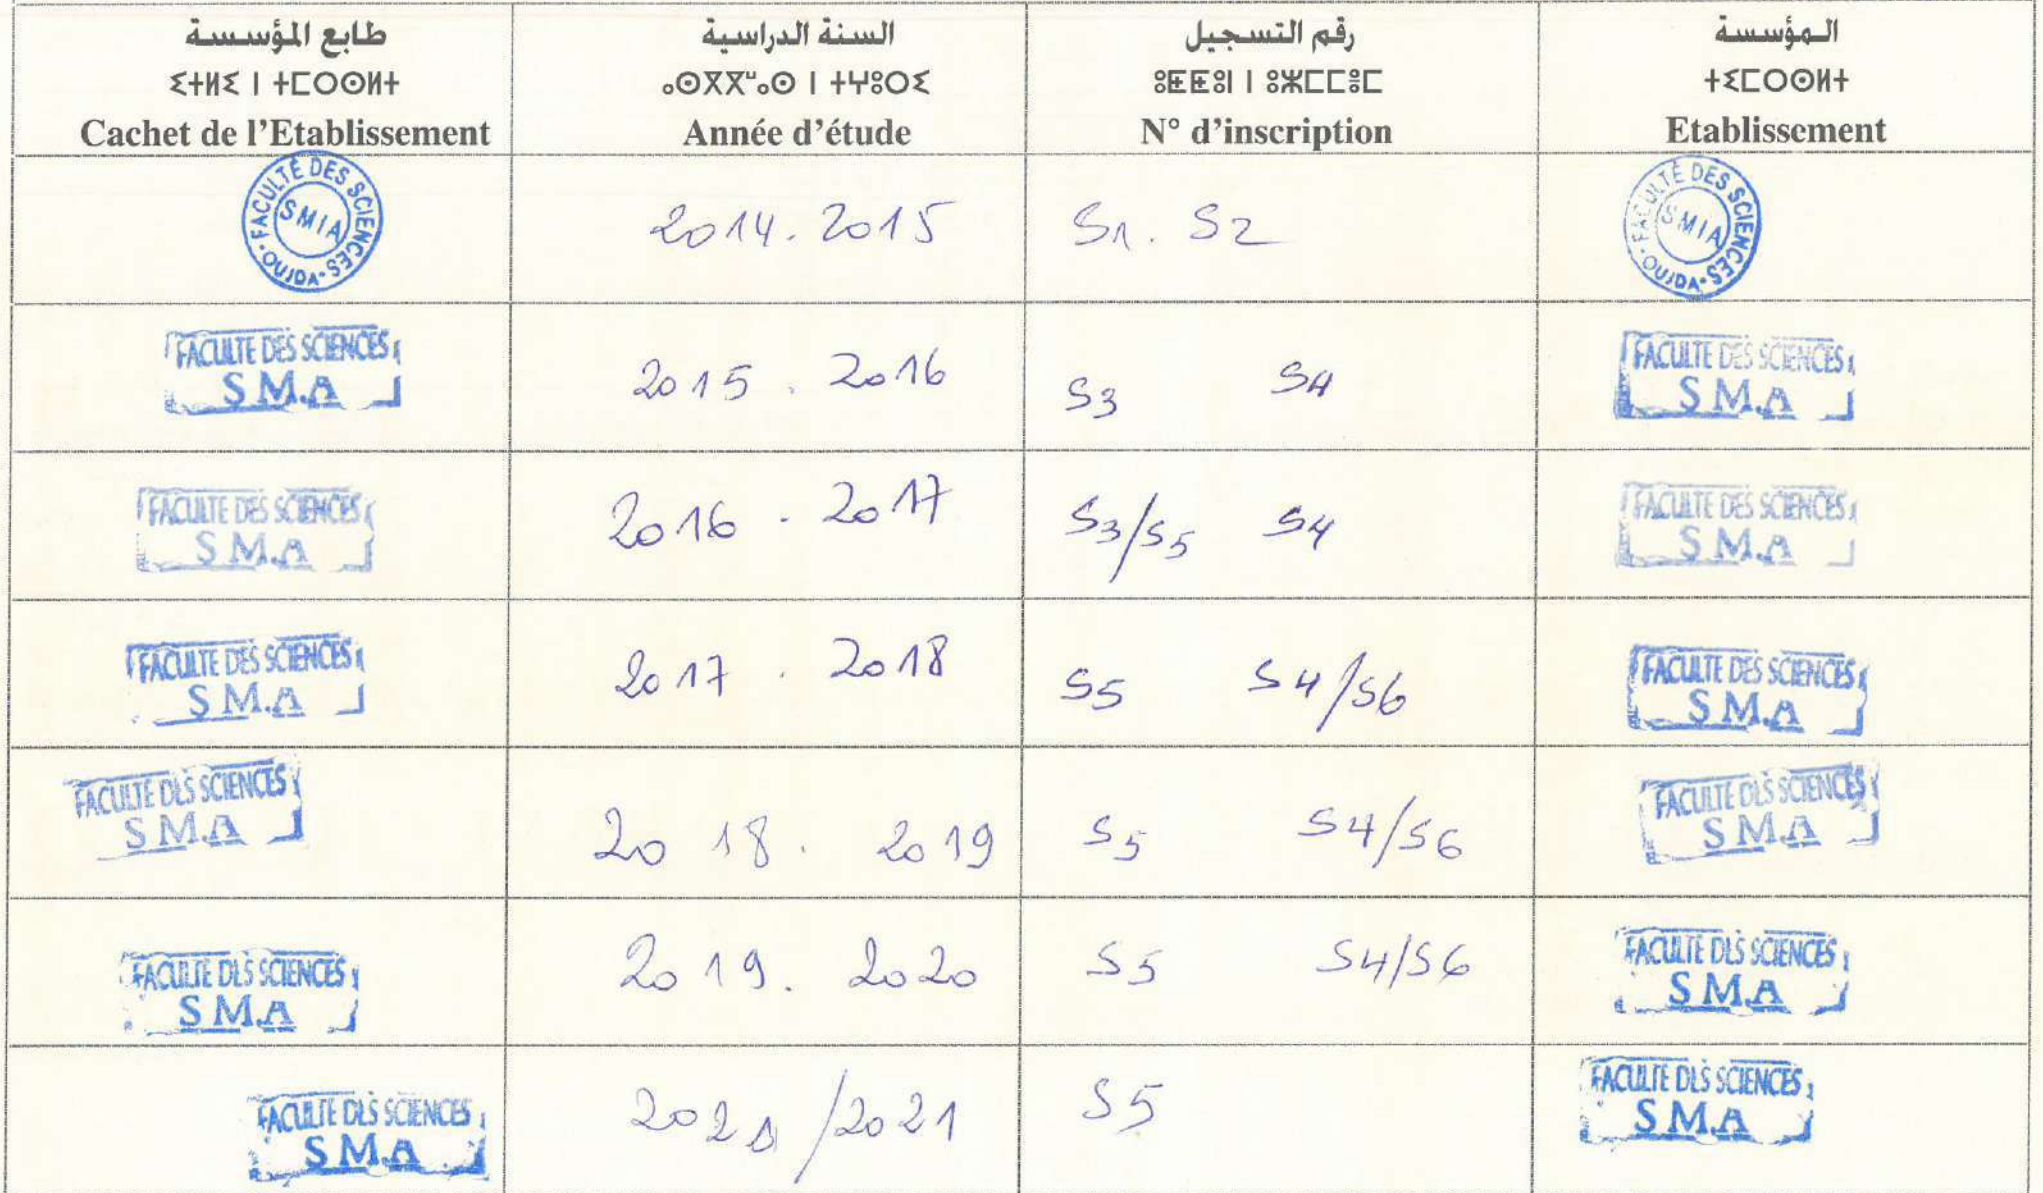 طابع المؤسسة
ⵉⵜⵍⵉ ⵏ ⵜⵎⵔⵙⵍⵜ
Cachet de l'Etablissement
السنة الدراسية
ⴰⵙⴳⴳⵯⴰⵙ ⵏ ⵜⵖⵓⵔⵉ
Année d'étude
رقم التسجيل
ⵓⵟⵟⵓⵏ ⵏ ⵓⵣⵎⵎⴻⵎ
N° d'inscription
المؤسسة
ⵜⵉⵎⵔⵙⵍⵜ
Etablissement
FACULTÉ DES SCIENCES · OUJDA ·
SMIA
2014.2015
S1. S2
FACULTÉ DES SCIENCES · OUJDA ·
SMIA
FACULTE DES SCIENCES
S M.A
2015 . 2016
S3 S4
FACULTE DES SCIENCES
S M.A
FACULTE DES SCIENCES
S M.A
2016 . 2017
S3/S5 S4
FACULTE DES SCIENCES
S M.A
FACULTE DES SCIENCES
S M.A
2017 . 2018
S5 S4/S6
FACULTE DES SCIENCES
S M.A
FACULTE DES SCIENCES
S M.A
20 18 . 2019
S5 S4/S6
FACULTE DES SCIENCES
S M.A
FACULTE DES SCIENCES
S M.A
2019. 2020
S5 S4/S6
FACULTE DES SCIENCES
S M.A
FACULTE DES SCIENCES
S M.A
/2021
S5
FACULTE DES SCIENCES
S M.A